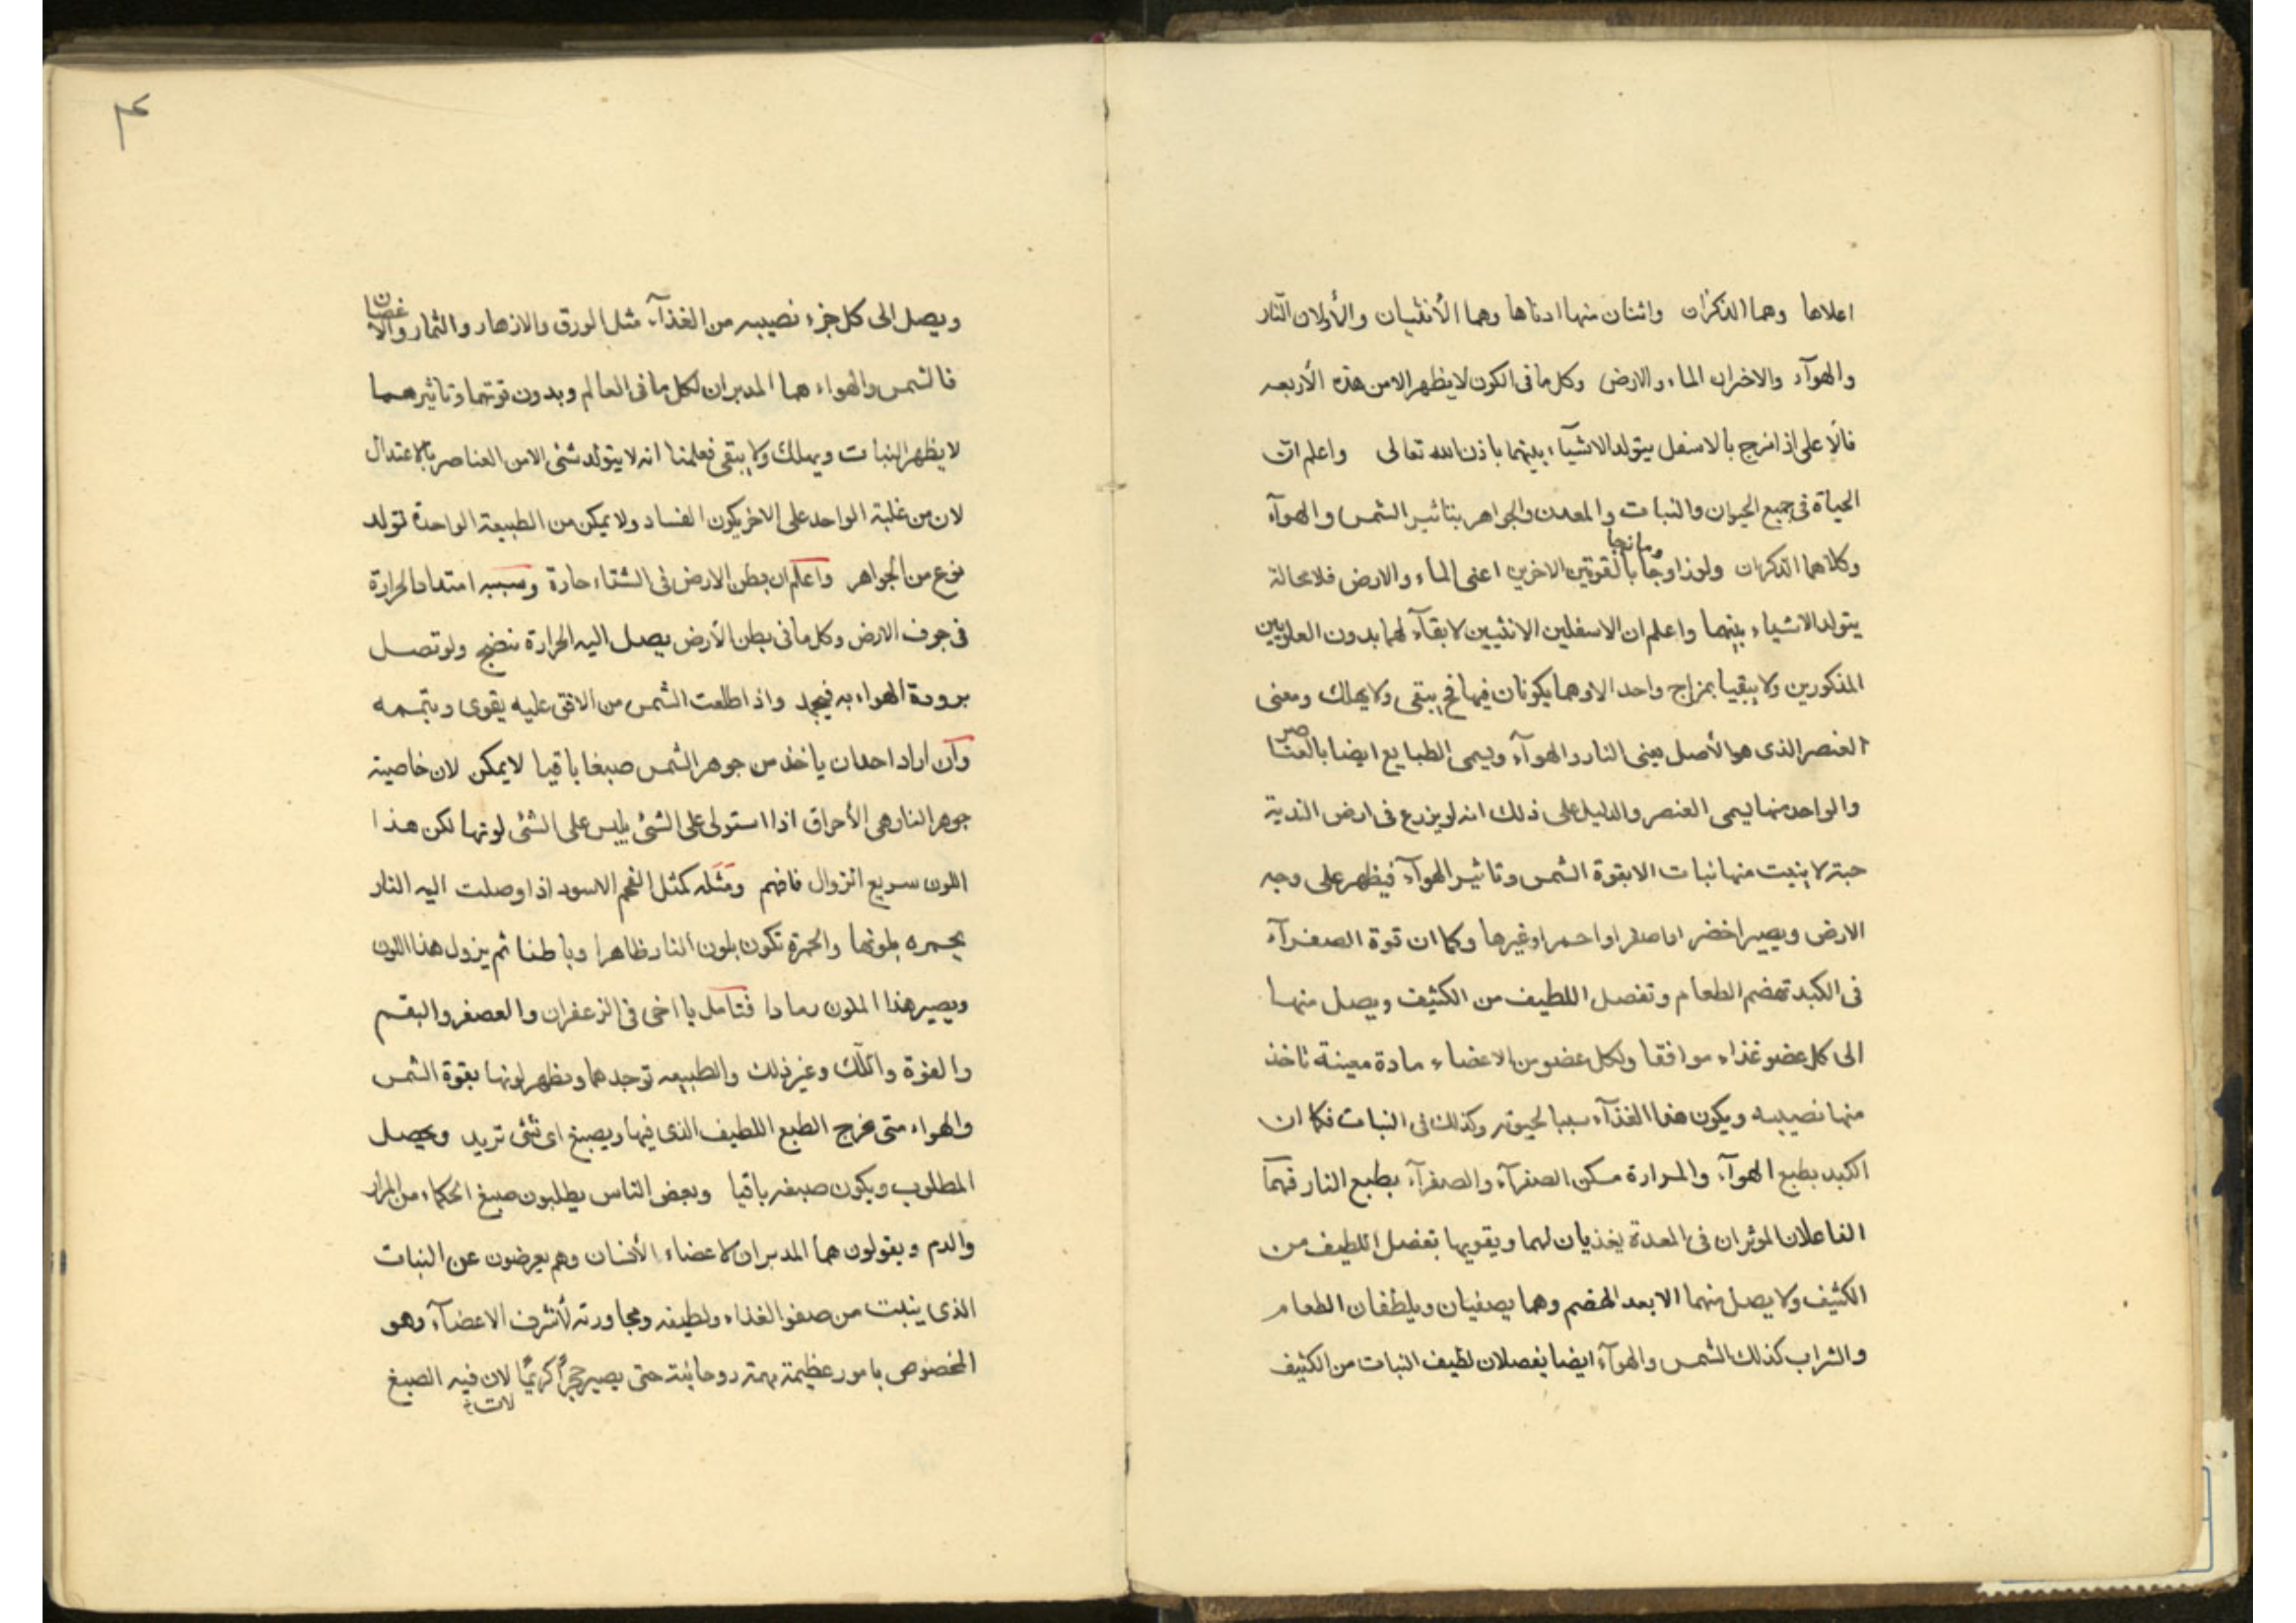 اعلاها وهما الذكران واثنان منها ادناها وهما الأنثيان والأولان النّار
والهوآء والاخران الماء والارض وكل ما فى الكون لا يظهر الا من هذه الأربعه
فالّا على اذ امزج بالاسفل يتولد الاشيآء بينهما باذن الله تعالى واعلم انّ
الحياة فى جميع الحيوان والنبات والمعدن والجواهر بتاثير الشمس والهوآء
وكلاهما الذكران ولوزاوجا ومازجا بالقوتين الاخرين اعنى الماء والارض فلا محالة
يتولد الاشياء بينهما واعلم ان الاسفلين الانثيين لا بقآء لهما بدون العلويين
المذكورين ولا يبقيا بمزاج واحد الا وهما يكونان فيها فح يبقى ولا يهلك ومعنى
العنصر الذى هو الأصل يعنى النار والهوآء ويسمى الطبايع ايضا بالعناصر
والواحد منها يسمى العنصر والدليل على ذلك انه لو يزرع فى ارض الندية
حبة لا ينبت منها نبات الا بقوة الشمس وتاثير الهوآء فيظهر على وجه
الارض ويصير اخضر او اصفر او احمر او غيرها وكما ان قوة الصفرآء
فى الكبد تهضم الطعام وتفصل اللطيف من الكثيف ويصل منها
الى كل عضو غذاء موافقا ولكل عضو من الاعضاء مادة معينة تاخذ
منها نصيبه ويكون هذا الغذآء سببا لحيوته وكذلك فى النبات فكما ان
الكبد بطبع الهوآء والمرارة مسكن الصفرآء والصفرآء بطبع النار فهما
الفاعلان الموثران فى المعدة يغذيان لهما ويقويها بتفصل اللطيف من
الكثيف ولا يصل منهما الا بعد الهضم وهما يصفيان ويلطفان الطعام
والشراب كذلك الشمس والهوآء ايضا يفصلان لطيف النبات من الكثيف
٤
ويصل الى كل جزء نصيبه من الغذآء مثل الورق والازهار والثمار والاغصان
فالشمس والهواء هما المدبران لكل ما فى العالم وبدون قوتهما وتاثيرهما
لا يظهر النبات ويهلك ولا يبقى فعلمنا انه لا يتولد شئى الا من العناصر بالاعتدال
لان من غلبة الواحد على الاخر يكون الفساد ولا يمكن من الطبيعة الواحدة تولد
نوع من الجواهر واعلم ان بطن الارض فى الشتاء حارة وسببه امتداد الحرارة
فى جوف الارض وكل ما فى بطن الأرض يصل اليه الحرارة نضج ولو تصل
برودة الهواء به فيجمد واذا طلعت الشمس من الافق عليه يقوى ويتممه
وان اراد احد ان ياخذ من جوهر الشمس صبغا باقيا لا يمكن لان خاصية
جوهر النار هى الأحراق اذا استولى على الشئى يلبس على الشئى لونها لكن هذا
اللون سريع الزوال فافهم ومثله كمثل الفحم الاسود اذا وصلت اليه النار
يحمره بلونها والحمرة تكون بلون النار ظاهرا وباطنا ثم يزول هذا اللون
ويصير هذا الملون رمادا فتامل يا اخى فى الزعفران والعصفر والبقم
والفوة واللّك وغير ذلك والطبيعه توجدها ويظهر لونها بقوة الشمس
والهواء متى يخرج الطبع اللطيف الذى فيها ويصبغ اى شئى تريد ويحصل
المطلوب ويكون صبغه باقيا وبعض الناس يطلبون صبغ الحكماء من المرار
والدم ويقولون هما المدبران لاعضاء الأنسان وهم يعرضون عن النبات
الذى ينبت من صفو الغذاء ولطيفه ومجاورته لأشرف الاعضآء وهو
المخصوص بامور عظيمة مهمة روحانية حتى يصير حجرًا كريمًا لان فيه الصبغ